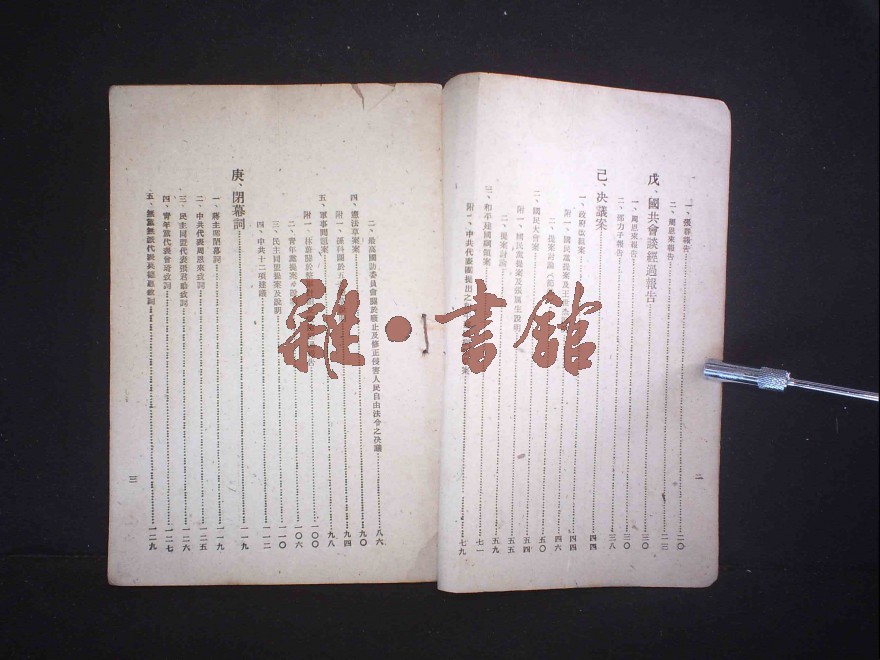 一、張群報告…二〇
二、周恩來報告…二三
戊、國共會談經過報告…三〇
一、周恩來報告…三〇
二、邵力子報告…三八
己、決議案…四四
一、政府改組案…四四
附一、國民黨提案及王
二、提案討論…五〇
二、國民大會案…五四
附一、國民黨提案及張厲生說明…五五
二、提案討論…五九
三、和平建國綱領案…七一
附一、中共代表團提出之 案…七九
二
二、最高國防委員會關於廢止及修正侵害人民自由法令之決議…八六
四、憲法草案案…九〇
附一、孫科關於五…九四
五、軍事問題案…九八
附一、林蔚關於 告…一〇〇
二、青年黨提案及說明…一〇六
三、民主同盟提案及說明…一一〇
四、中共十二項建議…一一二
庚、閉幕詞…一一九
一、蔣主席閉幕詞…一一九
二、中共代表周恩來致詞…一二五
三、民主同盟代表張君勱致詞…一二六
四、青年黨代表曾琦致詞…一二七
五、無黨無派代表莫德惠致詞…一二九
三
雜·書館